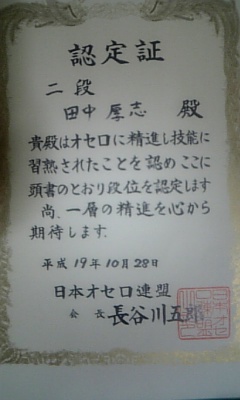 認定証
二段
田中厚志 殿
貴殿はオセロに精進し技能に
習熟されたことを認めここに
頭書のとおり段位を認定します
尚、一層の精進を心から
期待します.
平成19年10月28日
日本オセロ連盟
会長 長谷川五郎